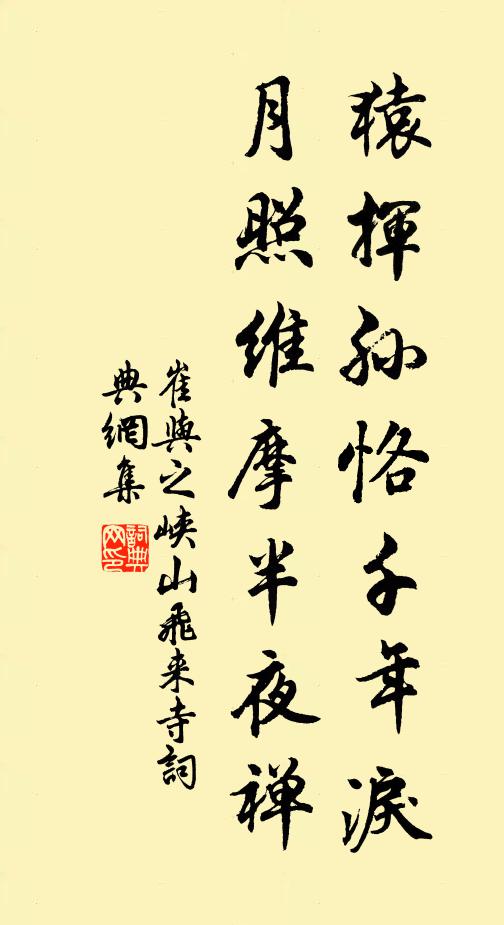 猿揮孙恪千年淚
月照维摩半夜禅
崔與之峡山飛来寺詞
典網集
詞典
网印